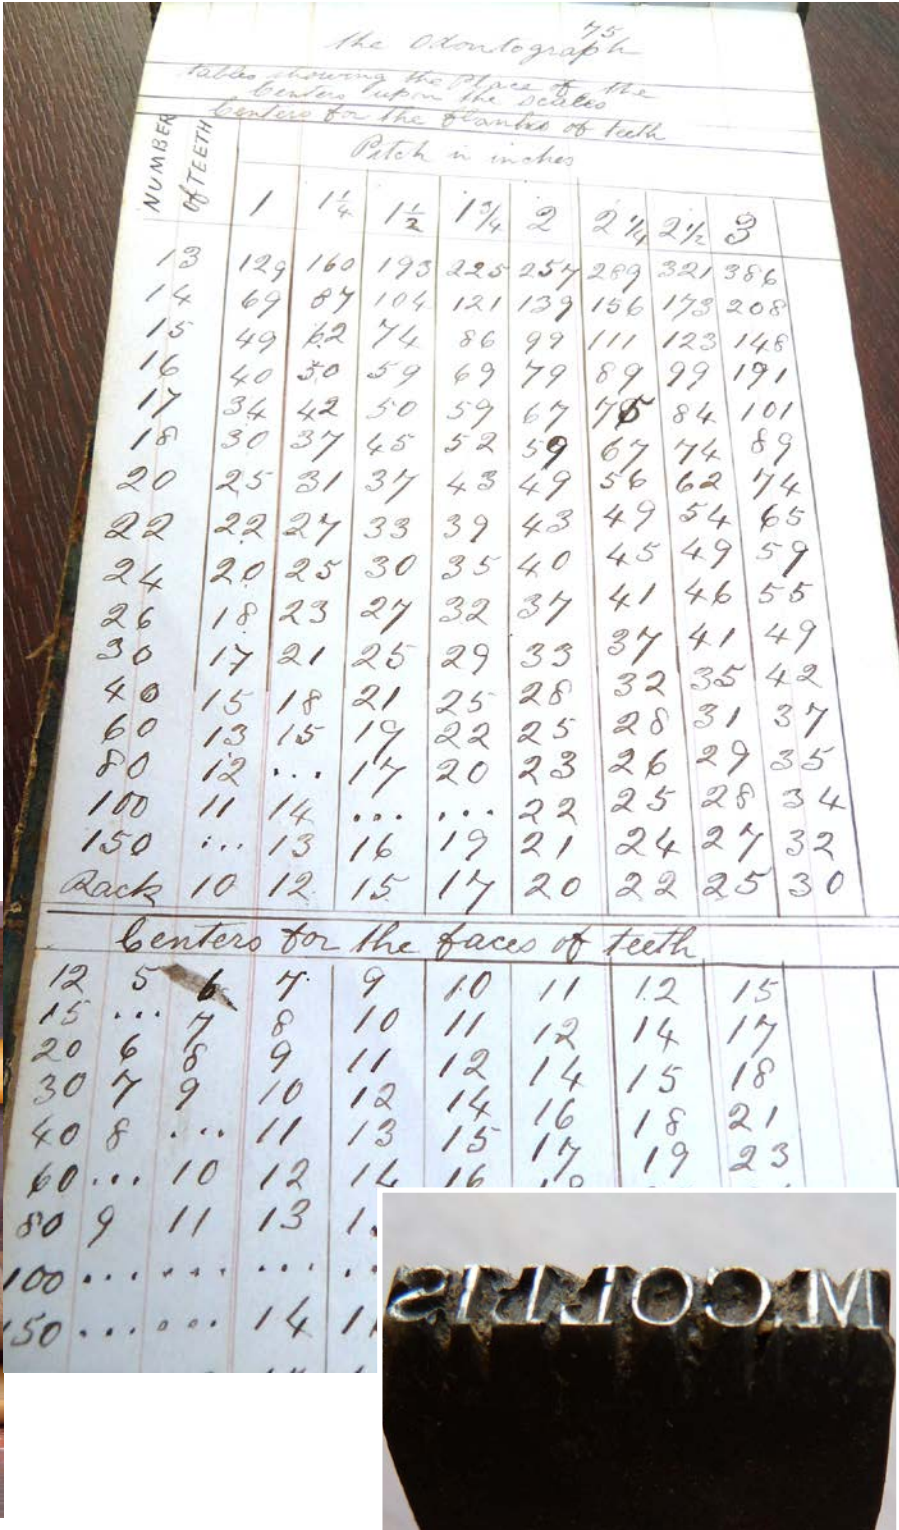 75
the Odontograph
tables showing the Place of the
Centers upon the scales
Centers for the flanks of teeth
NUMBER of TEETH
Pitch in inches
1 1 1/4 1 1/2 1 3/4 2 2 1/4 2 1/2 3
13 129 160 193 225 257 289 321 386
14 69 87 104 121 139 156 173 208
15 49 62 74 86 99 111 123 148
16 40 50 59 69 79 89 99 191
17 34 42 50 59 67 75 84 101
18 30 37 45 52 59 67 74 89
20 25 31 37 43 49 56 62 74
22 22 27 33 39 43 49 54 65
24 20 25 30 35 40 45 49 59
26 18 23 27 32 37 41 46 55
30 17 21 25 29 33 37 41 49
40 15 18 21 25 28 32 35 42
60 13 15 19 22 25 28 31 37
80 12 ... 17 20 23 26 29 35
100 11 14 ... ... 22 25 28 34
150 ... 13 16 19 21 24 27 32
Rack 10 12 15 17 20 22 25 30
Centers for the faces of teeth
12 5 6 7 9 10 11 12 15
15 ... 7 8 10 11 12 14 17
20 6 8 9 11 12 14 15 18
30 7 9 10 12 14 16 18 21
40 8 ... 11 13 15 17 19 23
60 ... 10 12 14 16
80 9 11 13
100 ... ... ...
150 ... ... 14
M.COLLIS